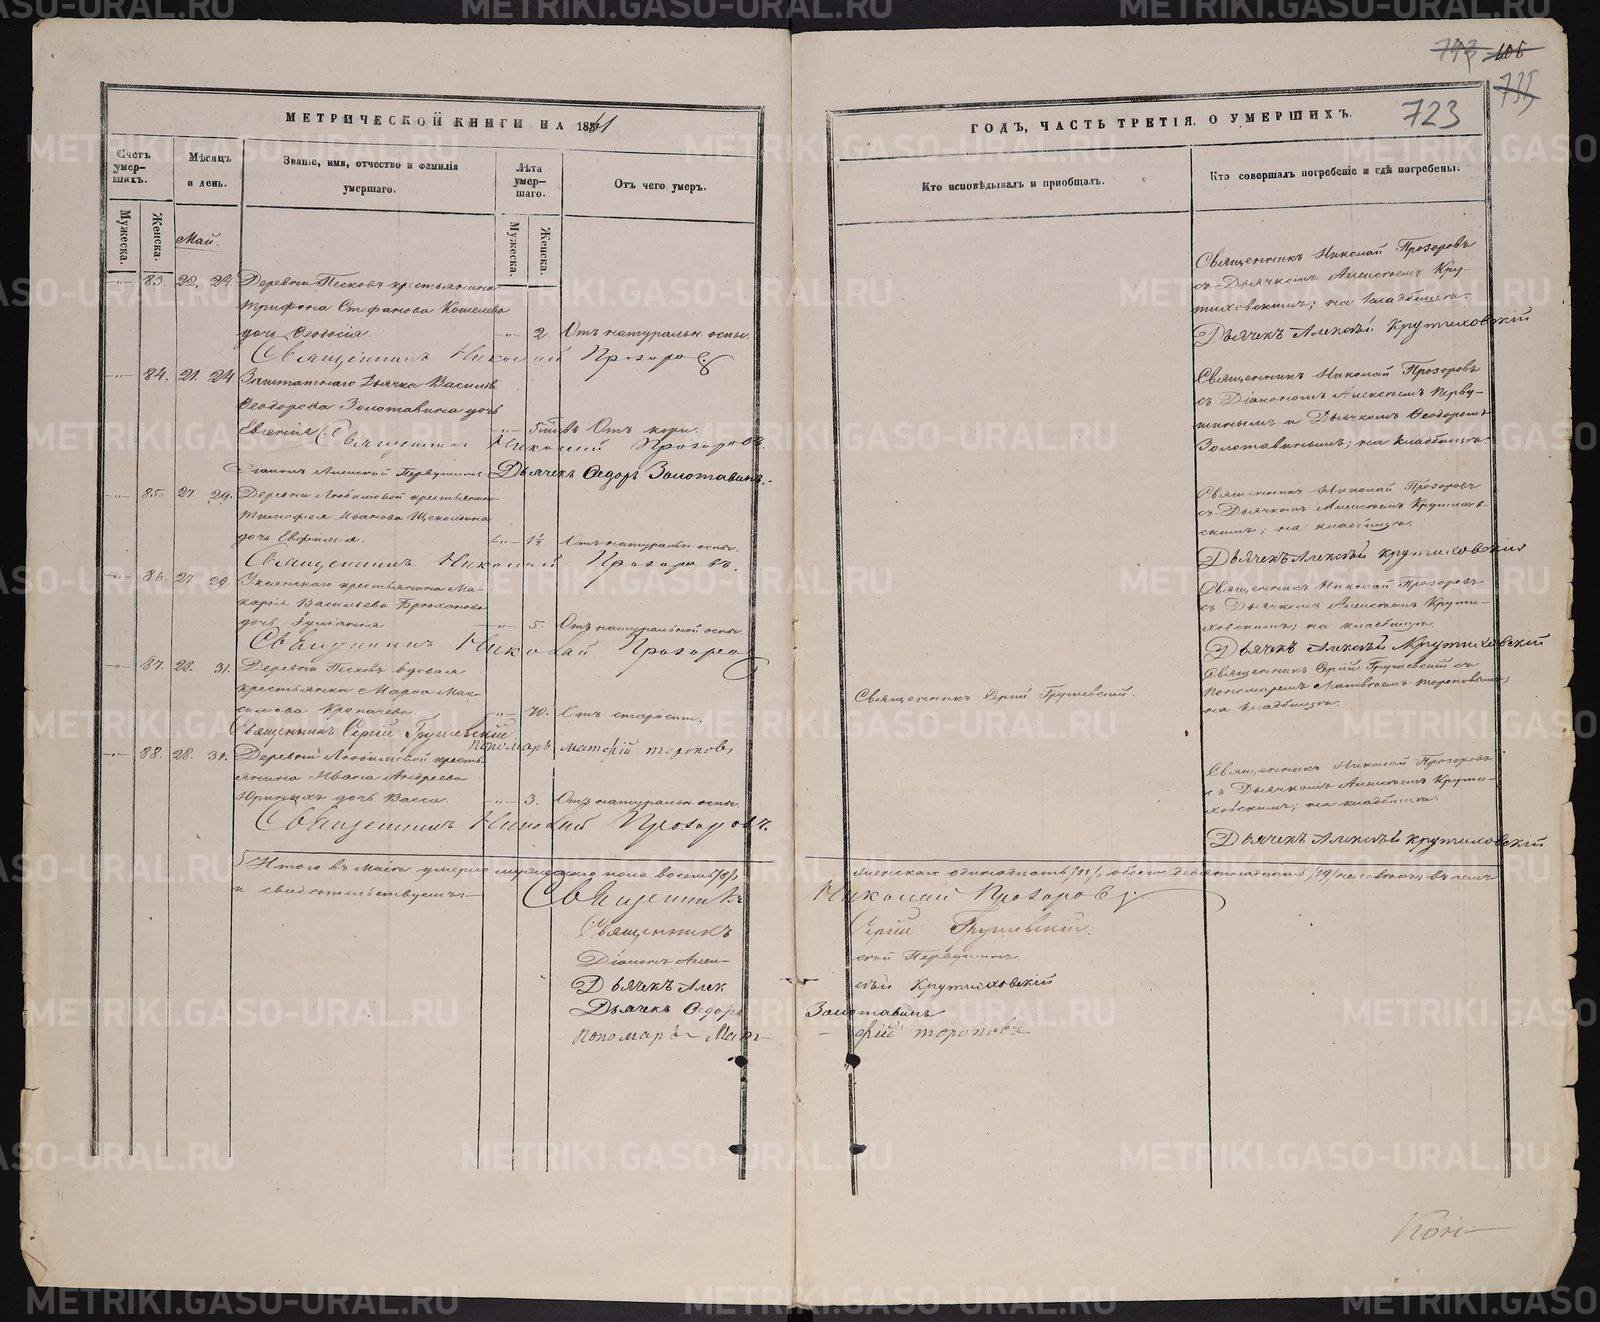 МЕТРИЧЕСКОЙ КНИГИ НА 1861
Счетъ умер- шихъ.
Мужеска.
Женска.
Мѣсяцъ и день.
Званіе, имя, отчество и фамилія умершаго.
Лѣта умер- шаго.
Мужеска.
Женска.
Отъ чего умеръ.
Май.
83. 22. 24. Деревни Песковъ крестьянина
Трифона Стефанова Кошелева
дочь Ѳеодосія. 2. Отъ натуральн. оспы.
Священникъ Николай Прозоровъ
84. 21. 24. Заштатнаго Дьячка Василія
Ѳеодорова Золотавина дочь
Евгенія Отъ кори.
Священникъ Николай Прозоровъ.
Діаконъ Алексѣй Первушинъ Дьячекъ Ѳедоръ Золотавинъ.
85. 27. 29. Деревни Любимовой крестьянина
Тимофея Иванова Щеколдина
дочь Евфимія. 1½ Отъ натуральн. оспы.
Священникъ Николай Прозоровъ.
86. 27. 29. крестьянина Ма-
карія Васильева Брюханова
дочь Іуліанія 5. Отъ натуральной оспы
Священникъ Николай Прозоровъ
87. 28. 31. Деревни Песковъ вдовая
крестьянка Марѳа Мак-
симова Кропачева. 70. Отъ старости.
Священникъ Сергій Грушевскій
Пономарь Матѳій Тороповъ
88. 28. 31. Деревни Любимовой кресть-
янина Ивана Андреева
дочь Васса. 3. Отъ натуральн. оспы.
Священникъ Николай Прозоровъ.
Итого въ маѣ умерло мужескаго пола восемь /8/,
и свидѣтельствуемъ:
Священникъ
Священникъ
Діаконъ Алек-
Дьячекъ Алек
Дьячкъ Ѳедоръ
Пономарь Мат-
713 606
735
723
ГОДЪ, ЧАСТЬ ТРЕТІЯ, О УМЕРШИХЪ.
Кто исповѣдывалъ и пріобщалъ.
Кто совершалъ погребеніе и гдѣ погребены.
Священникъ Николай Прозоровъ
съ Дьячкомъ Алексѣемъ Кру-
тиховскимъ; на кладбищѣ.
Дьячекъ Алексѣй Крутиховскій
Священникъ Николай Прозоровъ
съ Діакономъ Алексѣемъ Перву-
шинымъ и Дьячкомъ Ѳеодоромъ
Золотавинымъ; на кладбищѣ.
Священникъ Николай Прозоровъ
съ Дьячкомъ Алексѣемъ Крутихов-
скимъ; на кладбищѣ.
Дьячекъ Алексѣй Крутиховскій
Священникъ Николай Прозоровъ
съ Дьячкомъ Алексѣемъ Крути-
ховскимъ; на кладбищѣ.
Дьячекъ Алексѣй Крутиховскій
Священникъ Сергій Грушевскій.
Священникъ Сергій Грушевскій съ
Пономаремъ Матвѣемъ Тороповымъ;
на кладбищѣ.
Священникъ Николай Прозоровъ
съ Дьячкомъ Алексѣемъ Крути-
ховскимъ; на кладбищѣ.
Дьячекъ Алексѣй Крутиховскій
женскаго одинадцать /11/, обоего девятнадцать /19/ человѣкъ, въ чемъ
Николай Прозоровъ
Сергій Грушевскій.
сѣй Первушинъ
сѣй Крутиховскій
Золотавинъ
ѳій Тороповъ
METRIKI.GASO-URAL.RU